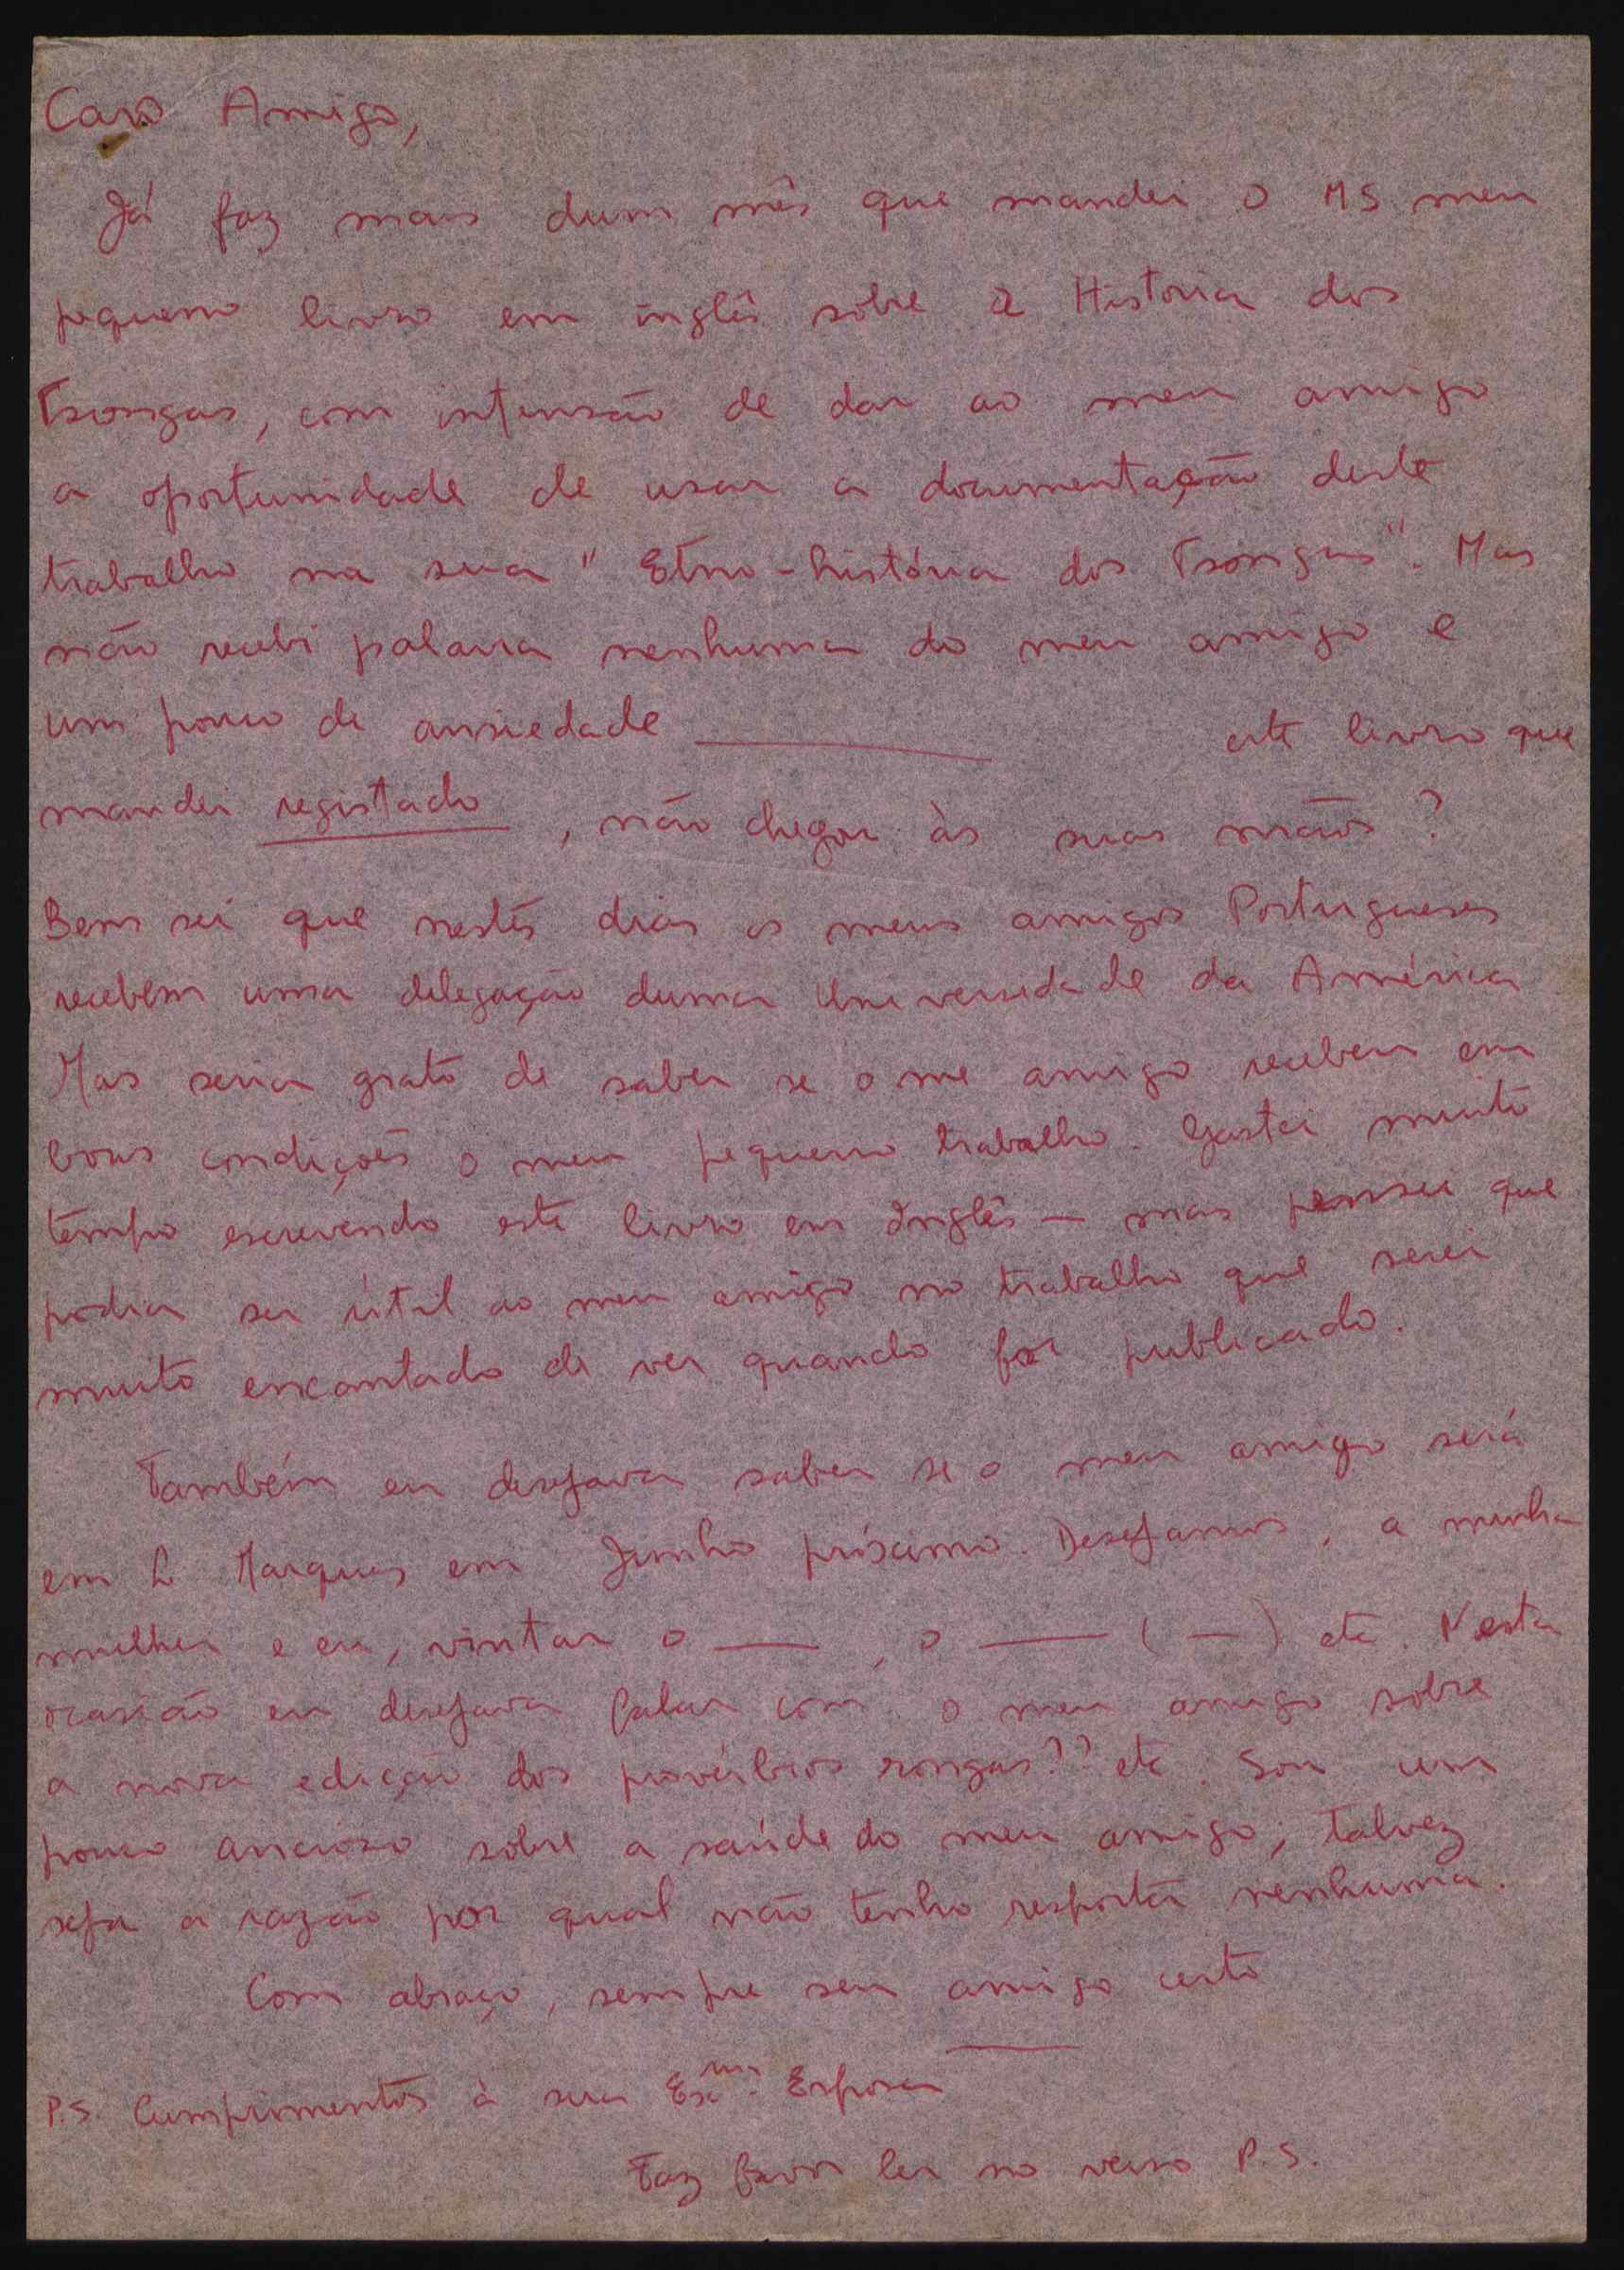 Caro Amigo,
Já faz mais dum mês que mandei o MS meu
pequeno livro em inglês sôbre a Historia dos
Tsongas, com intensão de dar ao meu amigo
a oportunidade de usar a documentação deste
trabalho na sua "Etno-história dos Tsongas". Mas
não recebi palavra nenhuma do meu amigo e
um pouco de ansiedade ______ este livro que
mandei registado, não chegou às suas mãos?
Bem sei que nestes dias os meus amigos Portugueses
recebem uma delegação duma Universidade da América
Mas seria grato de saber se o me amigo recebeu em
boas condições o meu pequeno trabalho. Gastei muito
tempo escrevendo este livro em Inglês — mas pensei que
podia ser útil ao meu amigo no trabalho que serei
muito encantado de ver quando for publicado.
Também eu desejava saber se o meu amigo será
em L. Marques em Junho próximo. Desejamos, a minha
mulher e eu, visitar o —— , o —— ( — ) etc. Nesta
ocasião eu desejava falar com o meu amigo sobre
a nova edição dos provérbios rongas?? etc. Sou um
pouco ancioso sôbre a saúde do meu amigo; talvez
seja a razão por qual não tenho resposta nenhuma.
Com abraço, sempre seu amigo certo
P.S. Cumprimentos à sua Exma. Esposa
Faz favor ler no verso P.S.